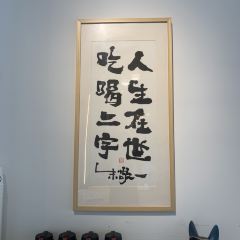 人生在世一
吃喝二字